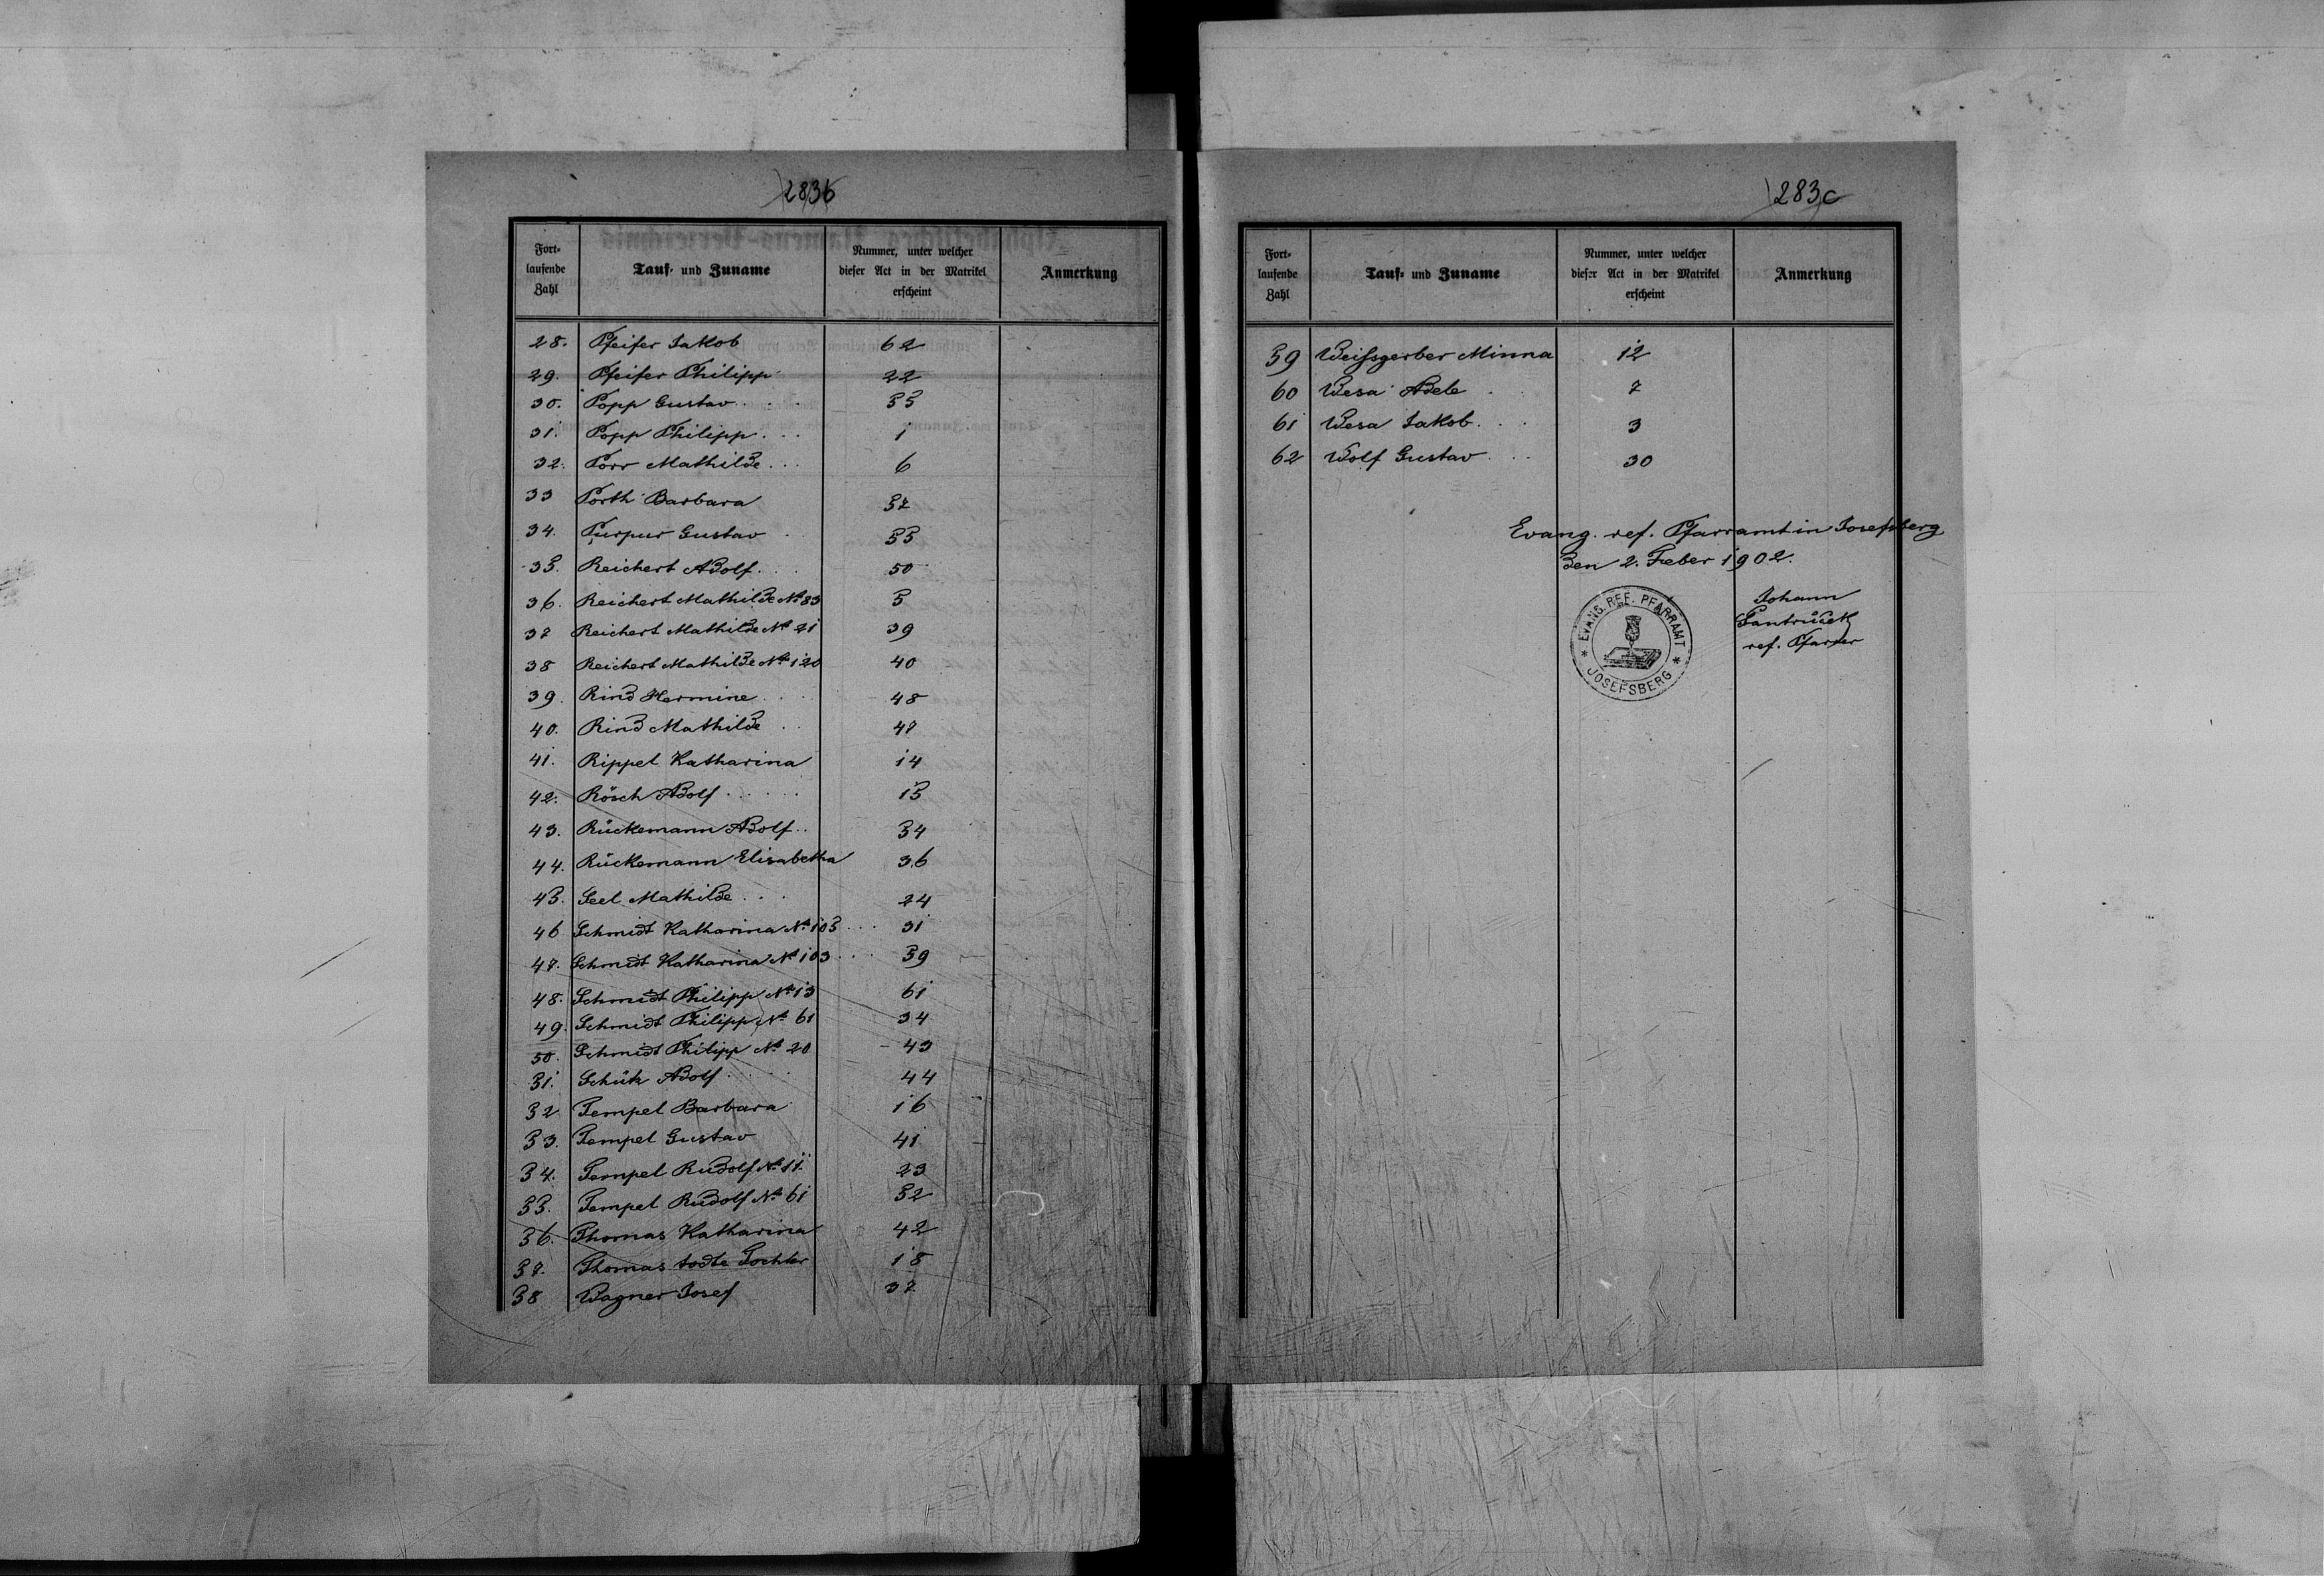 283b
Fort-
laufende
Zahl
Tauf- und Zuname
Nummer, unter welcher
dieser Act in der Matrikel
erscheint
Anmerkung
28. Pfeifer Jakob 62
29. Pfeifer Philipp 22
30. Popp Gustav 55
31. Popp Philipp 1
32. Porr Mathilde 6
33 Porth Barbara 57
34. Purpur Gustav 55
35. Reichert Adolf 50
36. Reichert Mathilde No 83 5
37 Reichert Mathilde No 21 39
38 Reichert Mathilde No 120 40
39. Rind Hermine 48
40. Rind Mathilde 47
41. Rippel Katharina 14
42. Rösch Adolf 15
43. Rückemann Adolf 54
44. Rückemann Elisabetha 36
45. Seel Mathilde 24
46 Schmidt Katharina No 105 31
47. Schmidt Katharina No 103 59
48. Schmidt Philipp No 13 61
49. Schmidt Philipp No 61 34
50. Schmidt Philipp No 20 43
51. Schütz Adolf 44
52 Tempel Barbara 16
53. Tempel Gustav 41
54. Tempel Rudolf No 11 23
55. Tempel Rudolf No 61 52
56. Thomas Katharina 42
57. Thomas todte Tochter 18
58 Wagner Josef 37
283c
Fort-
laufende
Zahl
Tauf- und Zuname
Nummer, unter welcher
dieser Act in der Matrikel
erscheint
Anmerkung
59 Weissgerber Minna 12
60 Wesa Adele 7
61 Wesa Jakob 3
62 Wolf Gustav 30
Evang. ref. Pfarramt in Josefsberg
den 2. Feber 1902.
EVANG. REF. PFARRAMT
* JOSEFSBERG *
Johann
Fantrück
ref. Pfarrer